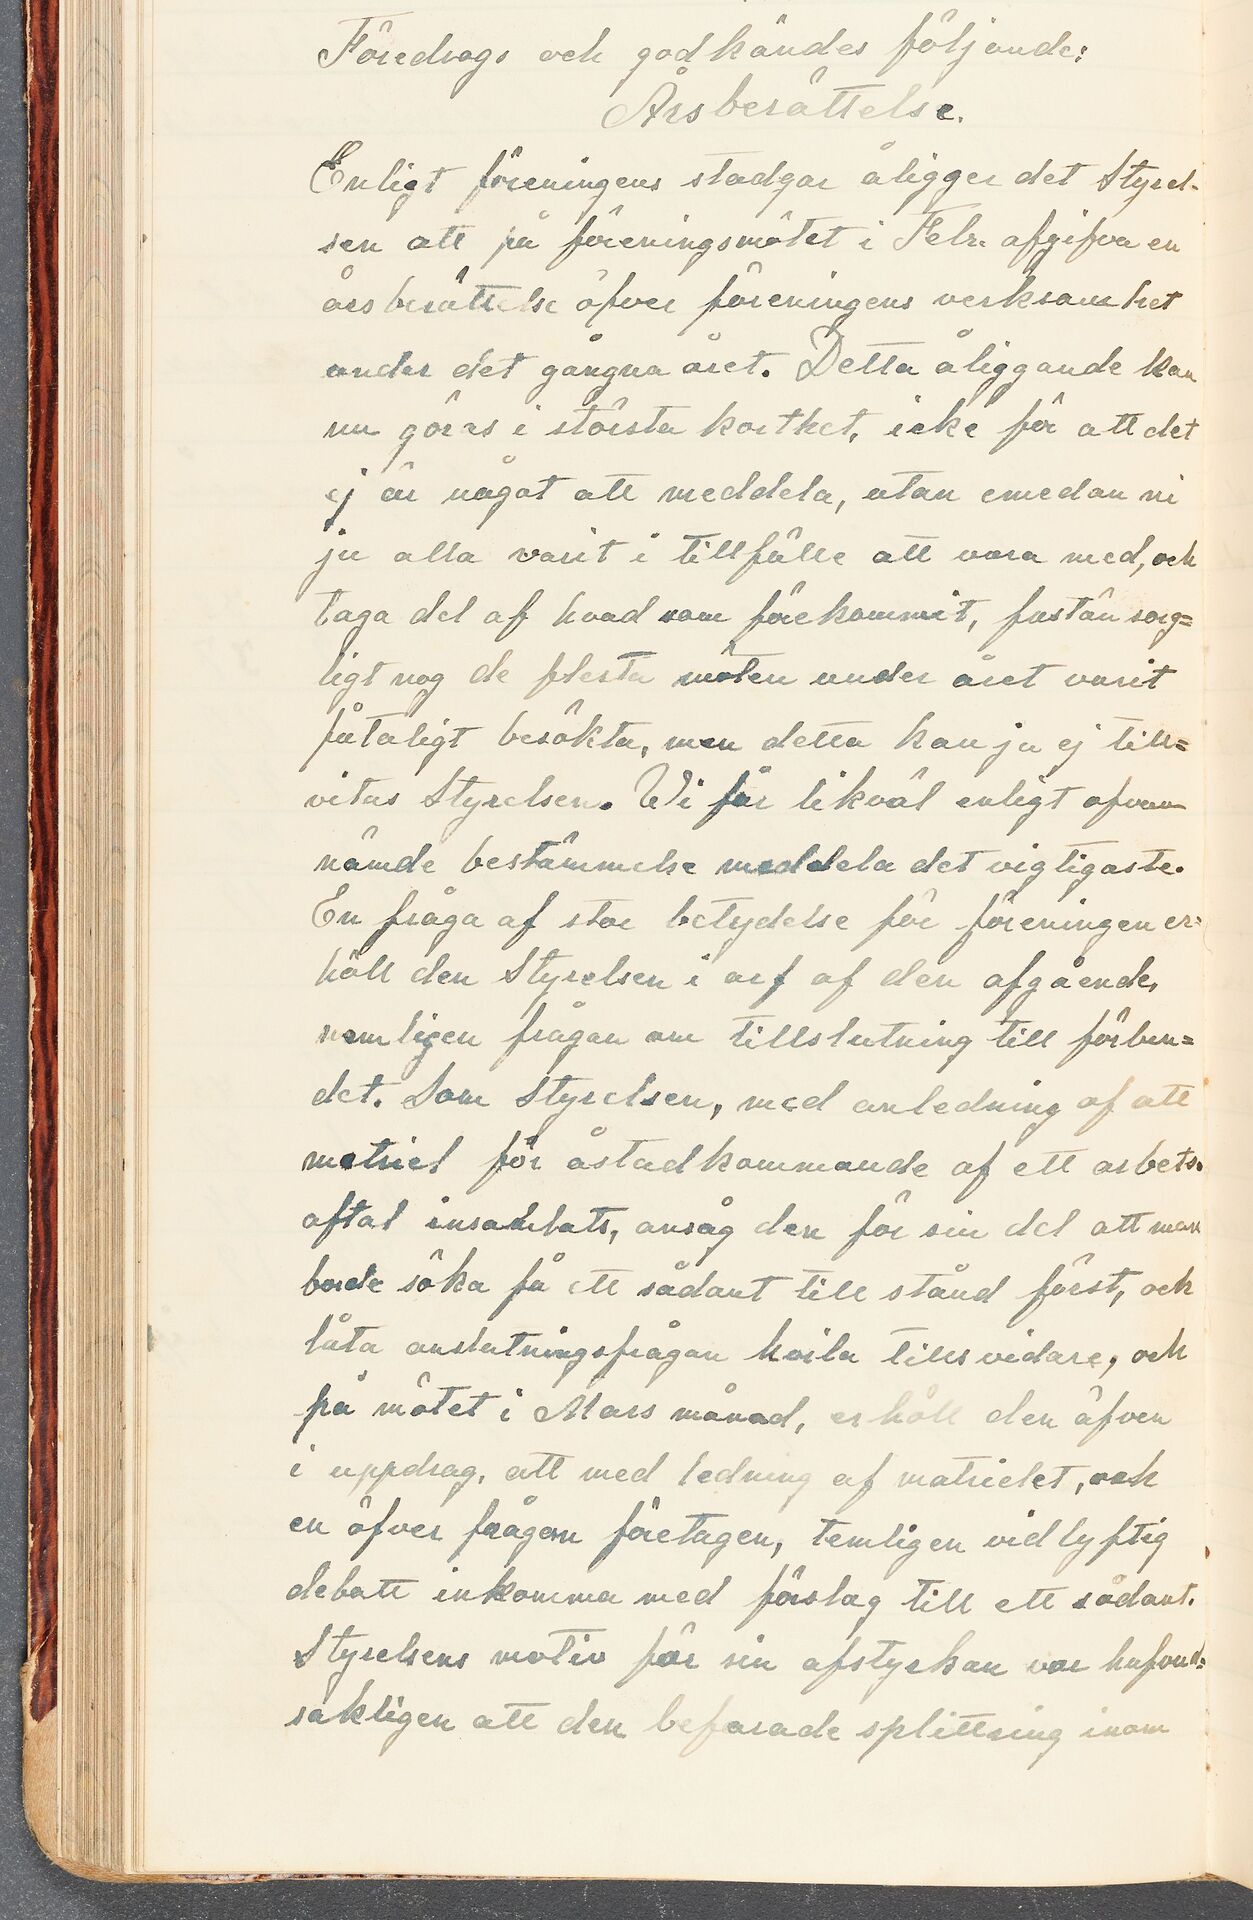 Föredrogs och godkändes följande:
Årsberättelse.
Enligt föreningens stadgar åligger det Styrel-
sen att på föreningsmötet i Febr. afgifva en
årsberättelse öfver föreningens verksamhet
under det gångna året. Detta åliggande kan
nu göras i största korthet, icke för att det
ej är något att meddela, utan emedan ni
ju alla varit i tillfälle att vara med, och
taga del af hvad som förekommit, fastän sorg=
ligt nog de flesta möten under året varit
fåtaligt besökta, men detta kan ju ej till=
vitas Styrelsen. Vi får likväl enligt ofvan
nämde bestämmelse meddela det vigtigaste.
En fråga af stor betydelse för föreningen er=
höll den Styrelsen i arf af den afgående,
nemligen frågan om tillslutning till förbun=
det. Som Styrelsen, med anledning af att
matriel för åstadkommande af ett arbets-
aftal insamlats, ansåg den för sin del att man
borde söka få ett sådant till stånd först, och
låta anslutningsfrågan hvila tills vidare, och
på mötet i Mars månad, erhöll den äfven
i uppdrag, att med ledning af matrielet, och
en öfver frågan företagen, temligen vidlyftig
debatt inkomma med förslag till ett sådant.
Styrelsens motiv för sin afstyrkan var hufvud=
sakligen att den befarade splittring inom